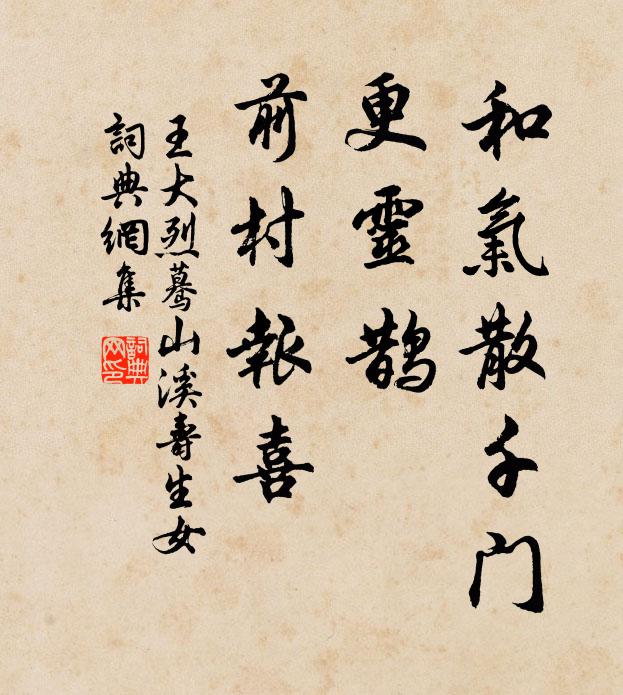 和氣散千門
更靈鵲
前村報喜
王大烈驀山溪壽生女
詞典網集
詞典网印